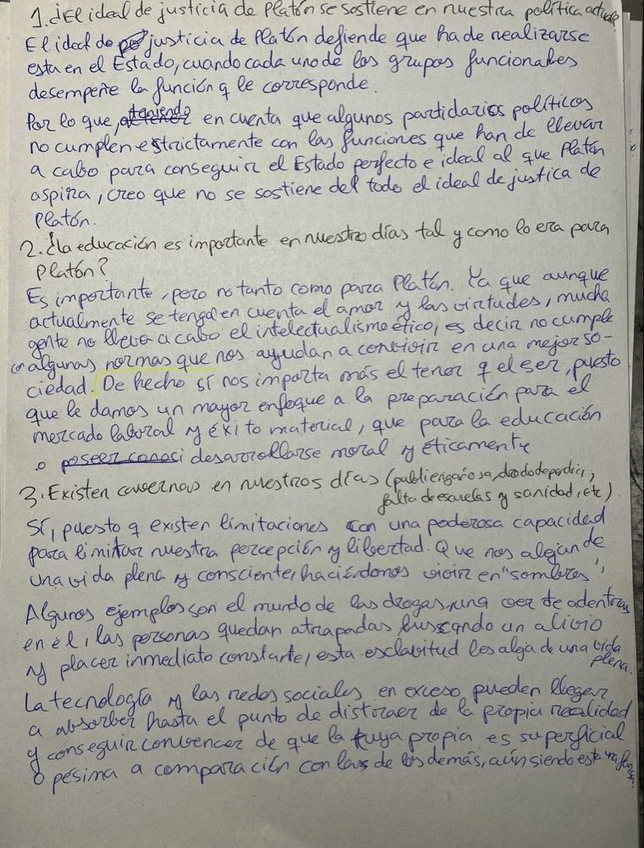 1. ¿El ideal de justicia de Platón se sostiene en nuestra política actual?
El ideal de justicia de Platón defiende que ha de realizarse
esta en el Estado, cuando cada uno de los grupos funcionales
desempeñe la función q le corresponde.
Por lo que, teniendo en cuenta que algunos partidarios políticos
no cumplen estrictamente con las funciones que han de llevar
a cabo para conseguir el Estado perfecto e ideal al que Platón
aspira, creo que no se sostiene del todo el ideal de justica de
Platón.
2. ¿La educación es importante en nuestro días tal y como lo era para
Platón?
Es importante, pero no tanto como para Platón. Ya que aunque
actualmente se tenga en cuenta el amor y las virtudes, mucha
gente no lleva a cabo el intelectualismo ético, es decir no cumple
con algunas normas que nos ayudan a convivir en una mejor so-
ciedad. De hecho sí nos importa más el tener q el ser, puesto
que le damos un mayor enfoque a la preparación para el
mercado laboral y éxito material, que para la educación
o poseer conoci desarrollarse moral y éticamente
3. Existen cavernas en nuestros días (publi engañosa, drododepardici,
falta de escuelas y sanidad, etc)
Sí, puesto q existen limitaciones con una poderosa capacidad
para limitar nuestra percepción y libertad. Que nos alejan de
una vida plena y consciente, haciéndonos vivir en "sombras".
Algunos ejemplos son el mundo de las drogas, una vez te adentras
en él, las personas quedan atrapadas buscando un alivio
y placer inmediato constante, esta esclavitud les aleja de una vida
plena.
La tecnología y las redes sociales en exceso, pueden llegar
a absorber hasta el punto de distraer de la propia realidad
y conseguir convencer de que la tuya propia es superficial
o pésima a comparación con las de los demás, aún siendo esta